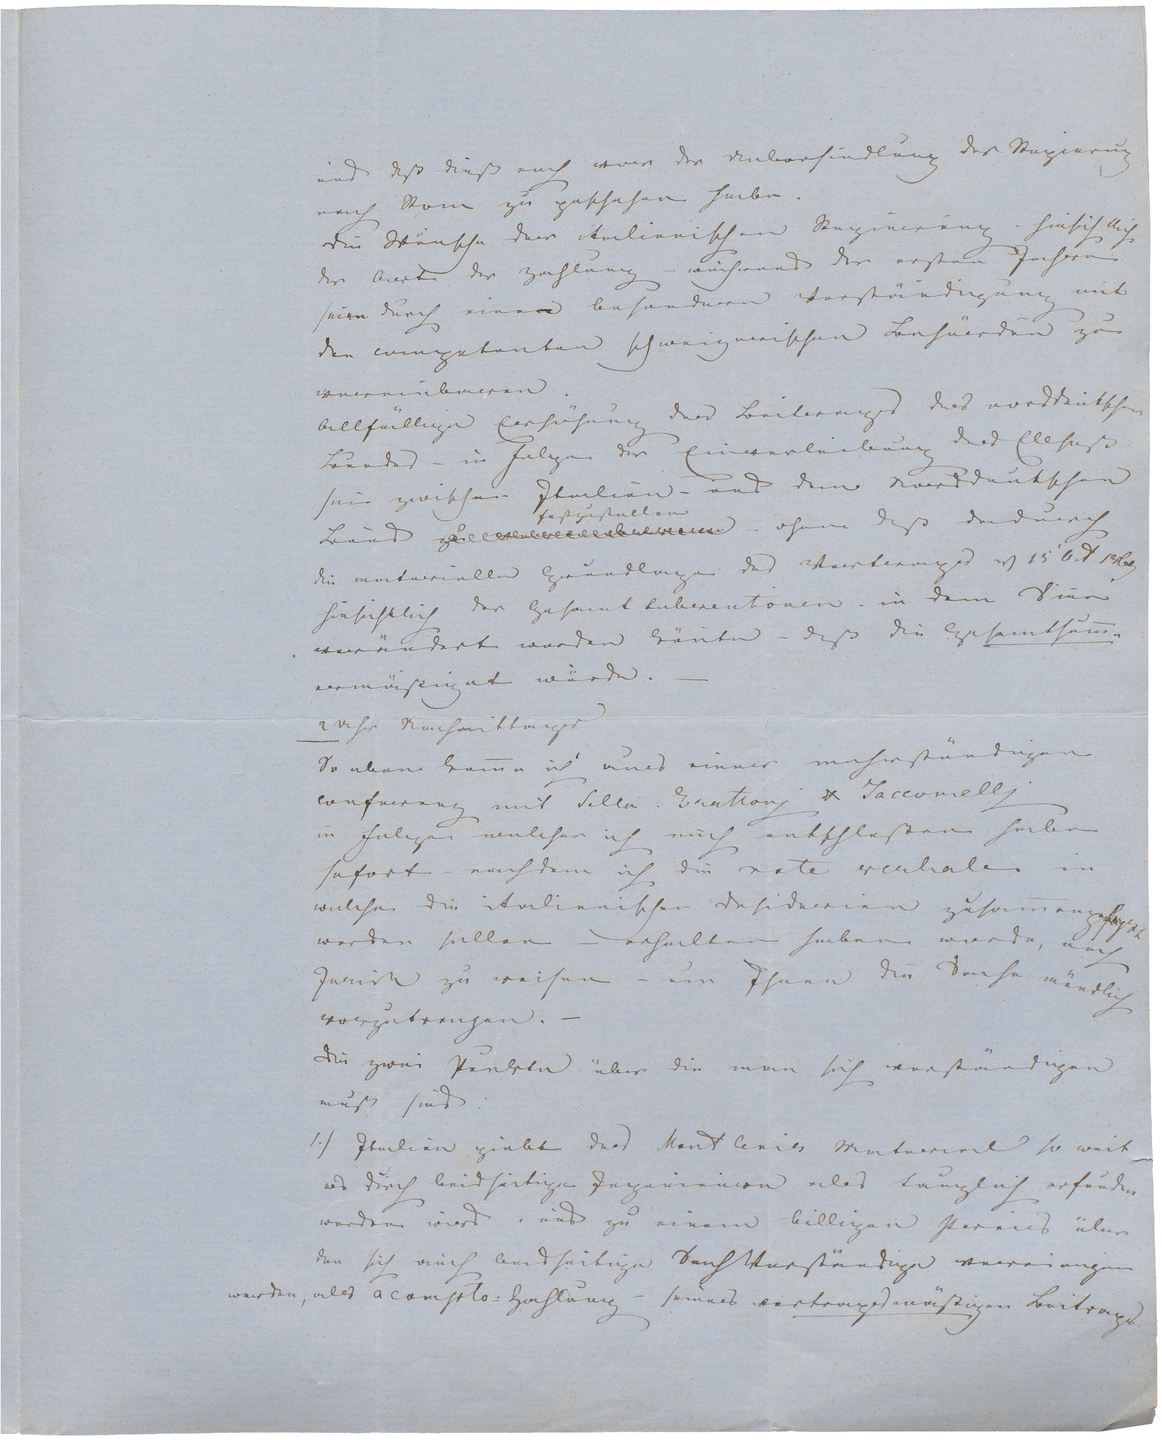 und daß dieß auch vor der Uebersiedlung der Regierung
nach Rom zu geschehen habe.
Die Wünsche der italienischen Regierung - hinsichtlich
der Art der Zahlung - während der ersten Jahre
seien durch eine besondere Verständigung mit
den competenten schweizerischen Behörden zu
vereinbaren.
Allfällige Erhöhung des Beitrages des norddeutschen
Bundes - in Folge der Einverleibung des Elsaß
sei zwischen Italien - und dem Norddeutschen
festzustellen
Bund - ohne daß dadurch
die materielle Grundlage des Vertrages v 15 Oct 1869
hinsichtlich der Gesamt Subventionen - in dem Sinne
verändert werden könnte - daß die Gesamtsumme
ermäßigt würde. —
2 Uhr Nachmittags
So eben komme ich aus einer mehrstündigen
Conferenz mit Sella. & Jaccomellj
in Folge welcher ich mich entschloßen habe
sofort - nachdem ich die note verbale in
welcher die italienischen Desiderien zusammengefaßt
werden sollen - erhalten haben werde, nach
Zürich zu reisen - um Ihnen die Sache mündlich
vorzutragen. —
Die zwei Punkte über die man sich verständigen
muß sind:
1.) Italien giebt das Mont Cenis Material so weit
es durch beidseitige Ingenieure als tauglich erfunden
werden wird - und zu einem billigen Preis über
den sich auch beidseitige Sach Verständige vereinigen
werden, als aconto-Zahlung - seines vertragsmäßigen Beitrags